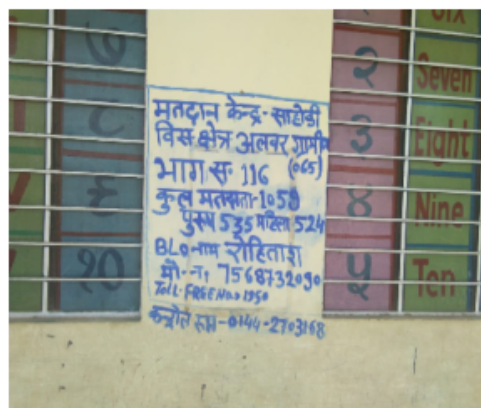 मतदान केन्द्र- साहोडी
विस क्षेत्र अलवर ग्रामीण
(065)
भाग स. 116
कुल मतदाता-1059
पुरुष 535 महिला 524
BLO-नाम रोहिताश
मो.-न. 7568732090
Toll FREE No.- 1950
कन्ट्रोल रूम-0144-2703168
७
८
९
१०
२
३
४
५
Six
Seven
Eight
Nine
Ten